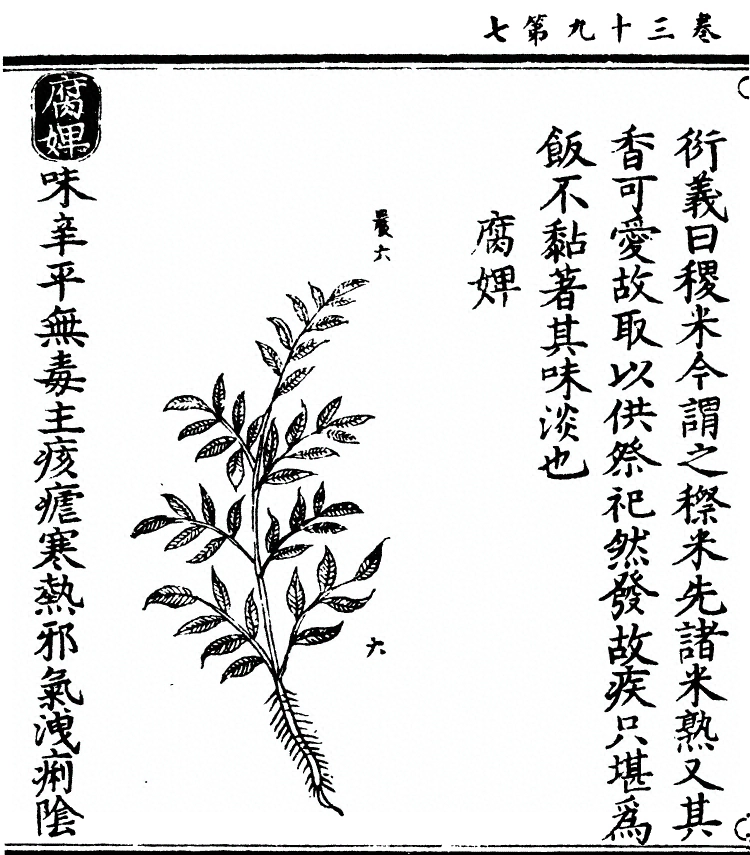 卷三十九第七
衍義曰稷米今謂之穄米先諸米熟又其
香可愛故取以供祭祀然發故疾只堪爲
飯不黏著其味淡也
腐婢
六
六
腐婢味辛平無毒主痎瘧寒熱邪氣洩痢陰